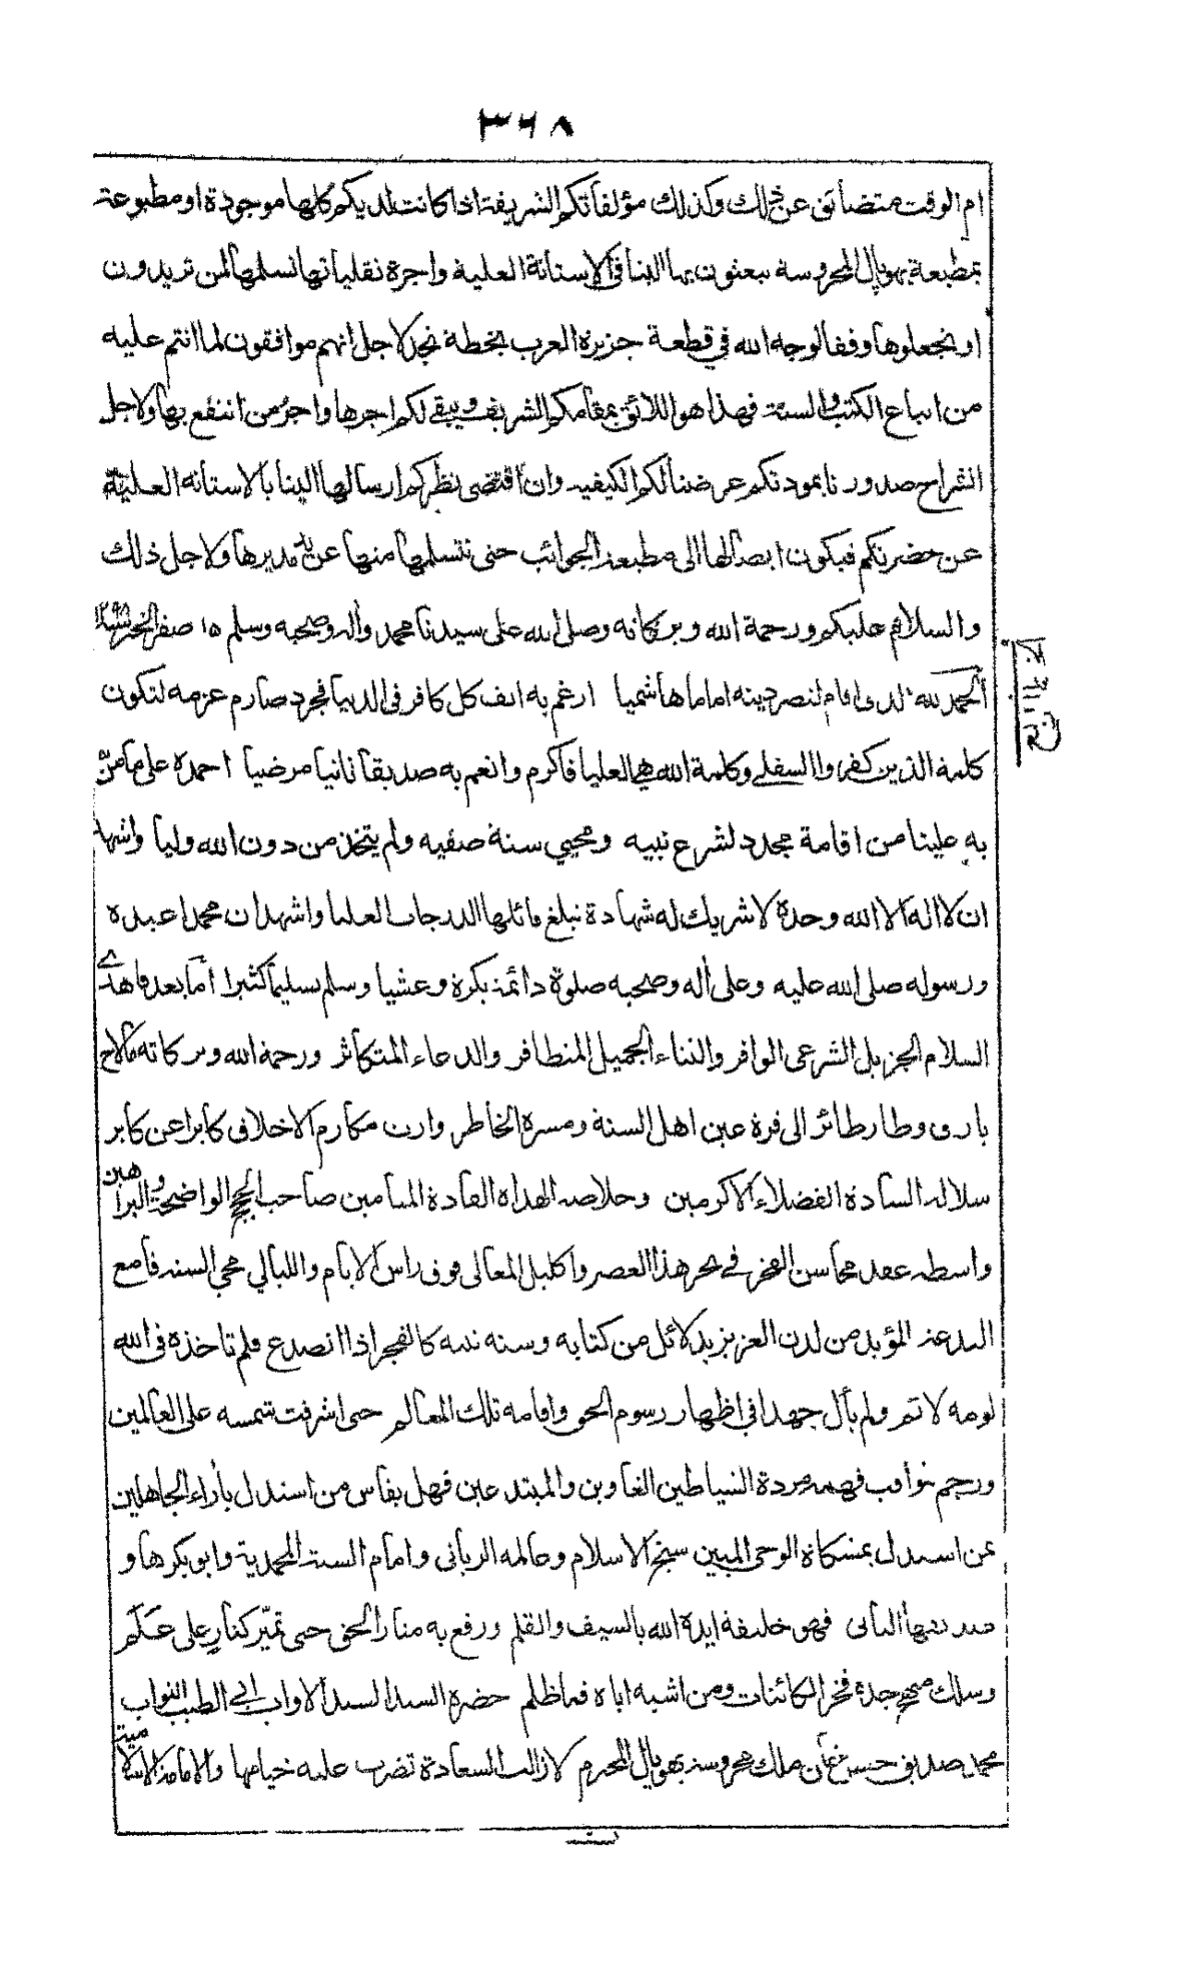 ٣٦٨
ام الوقت متضائق عن ذلك وكذلك مؤلفاتكم الشريفة اذا كانت لديكم كلها موجودة او مطبوعة
بمطبعة بهوپال المحروسة تبعثون بها الينا فى الاستانة العلية واجرة نقلياتها نسلمها لمن تريدون
او تجعلوها وقفا لوجه الله في قطعة جزيرة العرب بخطة نجد لاجل انهم موافقون لما انتم عليه
من اتباع الكتب والسنة فهذا هو اللائق بمقامكم الشريف ويبقى لكم اجرها واجر من انتفع بها ولاجل
انشراح صدورنا بمودتكم عرضنا لكم الكيفية وان اقتضى نظركم ارسالها الينا بالاستانة العلية
عن حضرتكم فيكون ايصالها الى مطبعة الجوائب حتى نتسلمها منها عن يد مديرها ولاجل ذلك
والسلام عليكم ورحمة الله وبركاته وصلى الله على سيدنا محمد وأله وصحبه وسلم ١٥ صفر الخير
الحمد لله الذى اقام لنصر دينه اماما هاشميا ارغم به انف كل كافر فى الدنيا فجرد صارم عزمه لتكون
كلمة الذين كفروا السفلى وكلمة الله هى العليا فاكرم وانعم به صديقا ثانيا مرضيا احمده على ما منّ
به علينا من اقامة مجدد لشرع نبيه ومحيي سنة صفيه ولم يتخذ من دون الله وليا واشهد
ان لا اله الا الله وحده لا شريك له شهادة تبلغ قائلها الدرجات العليا واشهد ان محمدا عبده
ورسوله صلى الله عليه وعلى أله وصحبه صلوة دائمة بكرة وعشيا وسلم تسليما كثيرا اما بعد فاهدى
السلام الجزيل الشرعى الوافر والثناء الجميل المتظافر والدعاء المتكاثر ورحمة الله وبركاته ما لاح
بارق وطار طائر الى قرة عين اهل السنة ومسرة الخاطر وارث مكارم الاخلاق كابرا عن كابر
سلالة السادة الفضلاء الاكرمين وخلاصة الهداة القادة الميامين صاحب الحجج الواضحة والبراهين
واسطة عقد محاسن الفخر في نحر هذا العصر واكليل المعالى فوق راس الايام والليالي محي السنة قامع
البدعة المؤيد من لدن العزيز بدلائل من كتابه وسنة نبيه كالفجر اذا انصدع ولم تاخذه فى الله
لومة لائم ولم يأل جهدا فى اظهار رسوم الحق واقامة تلك المعالم حتى اشرقت شمسه على العالمين
ورجم ثواقب فهمه مردة الشياطين الغاوين والمبتدعين فهل يقاس من استدل بأراء الجاهلين
عن استدل بمشكاة الوحى المبين شيخ الاسلام وعالمه الربانى وامام السنة المحمدية وابو بكرها و
صديقها الثانى فهو خليفة ايده الله بالسيف والقلم ورفع به منار الحق حتى تميز كنار على علم
وسلك منهج جده فخر الكائنات ومن اشبه اباه فما ظلم حضرة السيد السند الاواب ابي الطيب النواب
محمد صديق حسن خان ملك محروسة بهوپال المحرم لازالت السعادة تضرب عليه خيامها والامامة الاسلامية